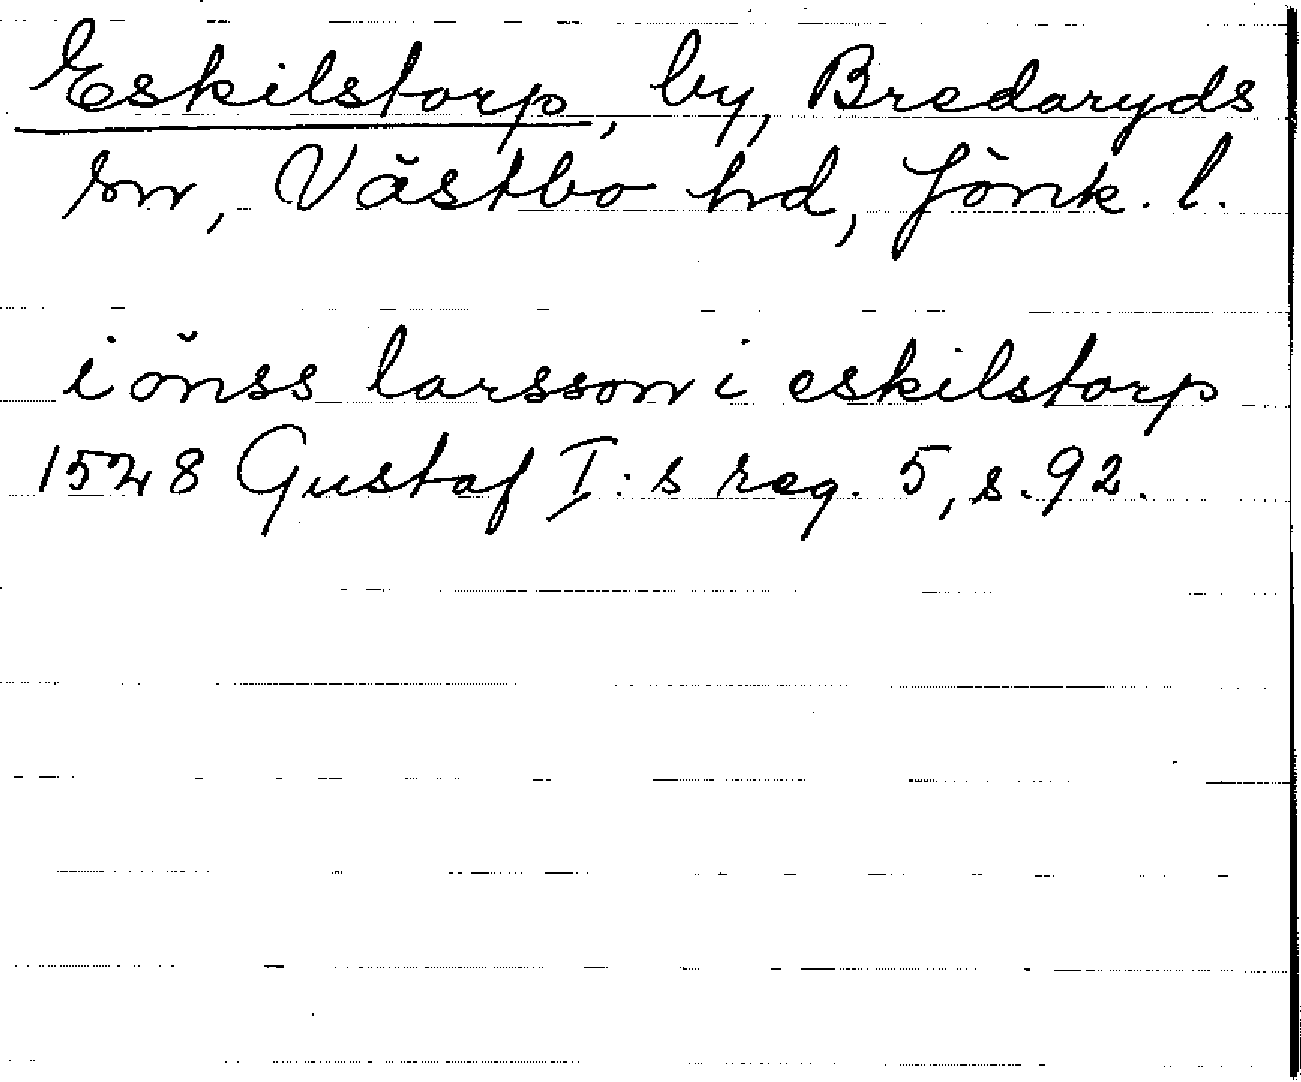 Eskilstorp, by, Bredaryds
sn, Västbo hd, Jönk. l.
iönss larsson i eskilstorp
1528 Gustaf I:s reg. 5, s. 92.